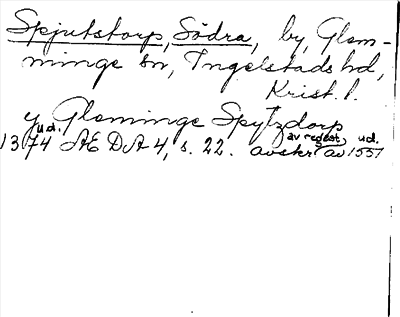 Spjutstorp, Södra, by, Glem-
minge sn, Ingelstads hd,
Krist. l.
y Gleminge Spytzdorp
1374 u.d. ÆDA 4, s. 22. avskr. av regest, ud. av 1551